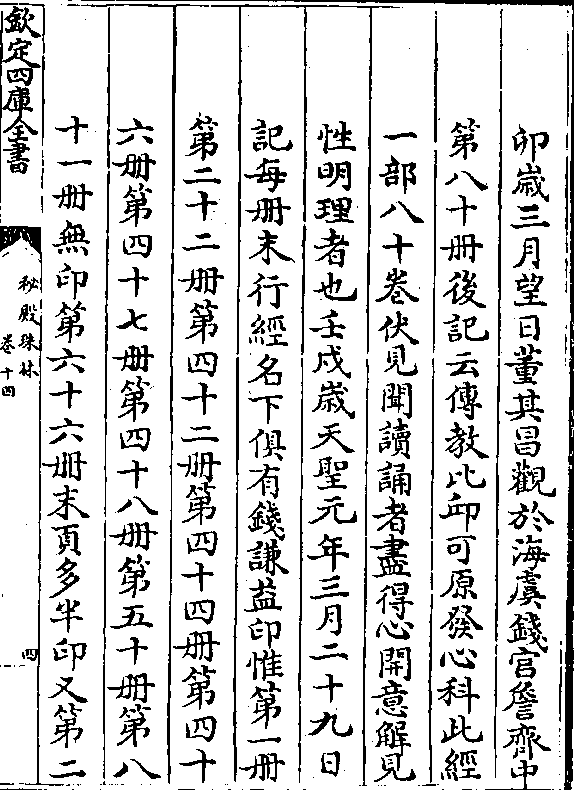 卯歲三月望日董其昌觀於海虞錢宫詹齋中
第八十册後記云傳教比丘可原發心科此經
一部八十卷伏見聞讀誦者盡得心開意解見
性明理者也壬戌歲天聖元年三月二十九日
記每册末行經名下俱有錢謙益印惟第一册
第二十二册第四十二册第四十四册第四十
六册第四十七册第四十八册第五十册第八
十一册無印第六十六册末頁多半印又第二
欽定四庫全書
秘殿珠林
卷十四
四